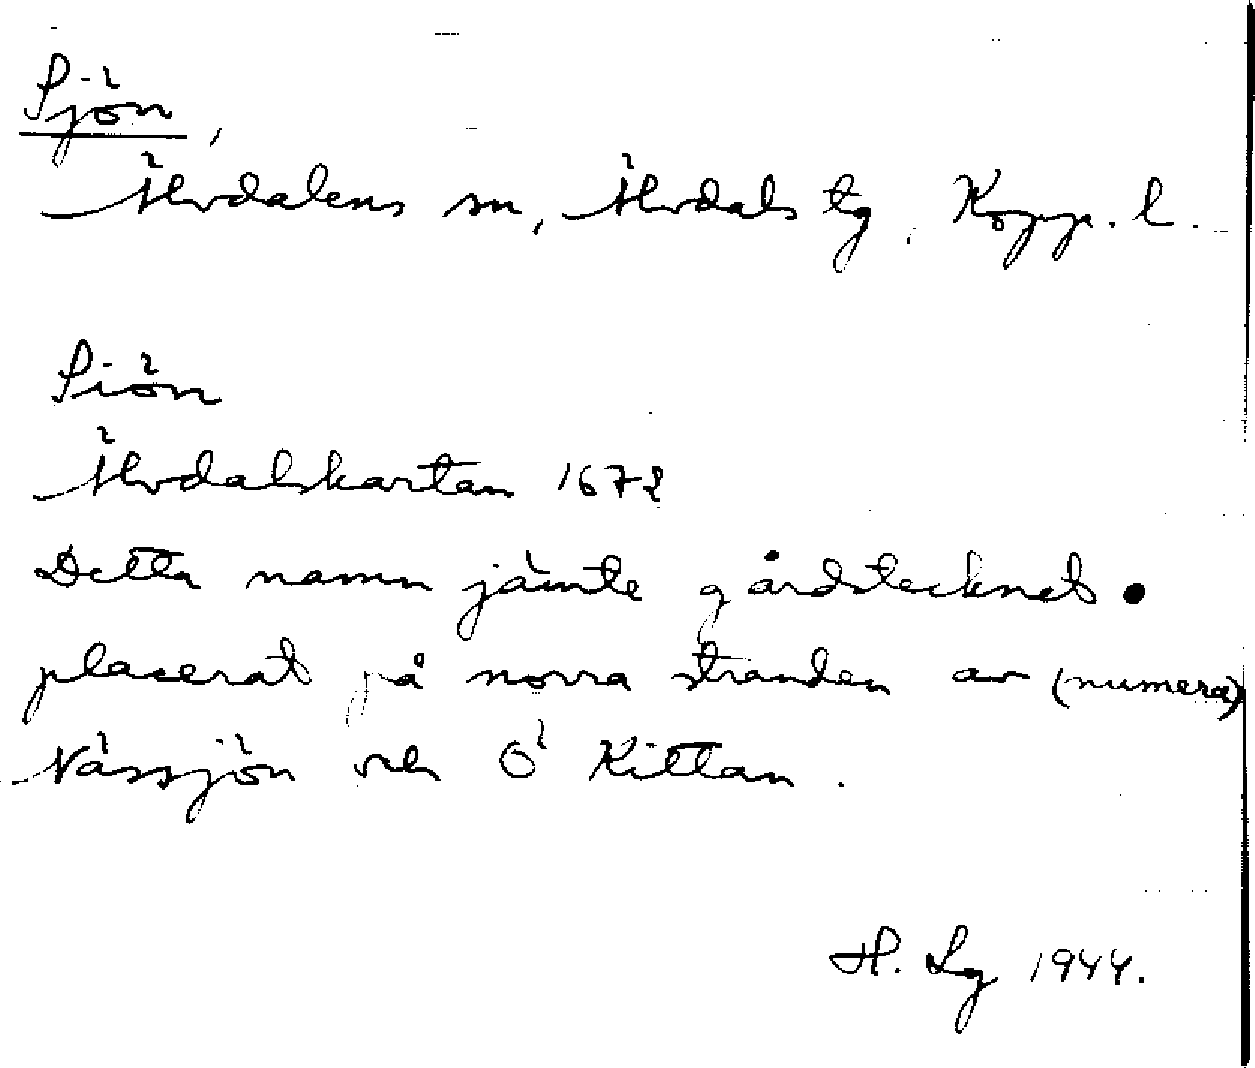 Sjön,
Älvdalens sn, Älvdals tg, Kopp. l.
Siön
Älvdalskartan 1672
Detta namn jämte gårdstecknet •
placerat på norra stranden av (numera)
Nässjön och Ö Kittan.
H. Lg 1944.